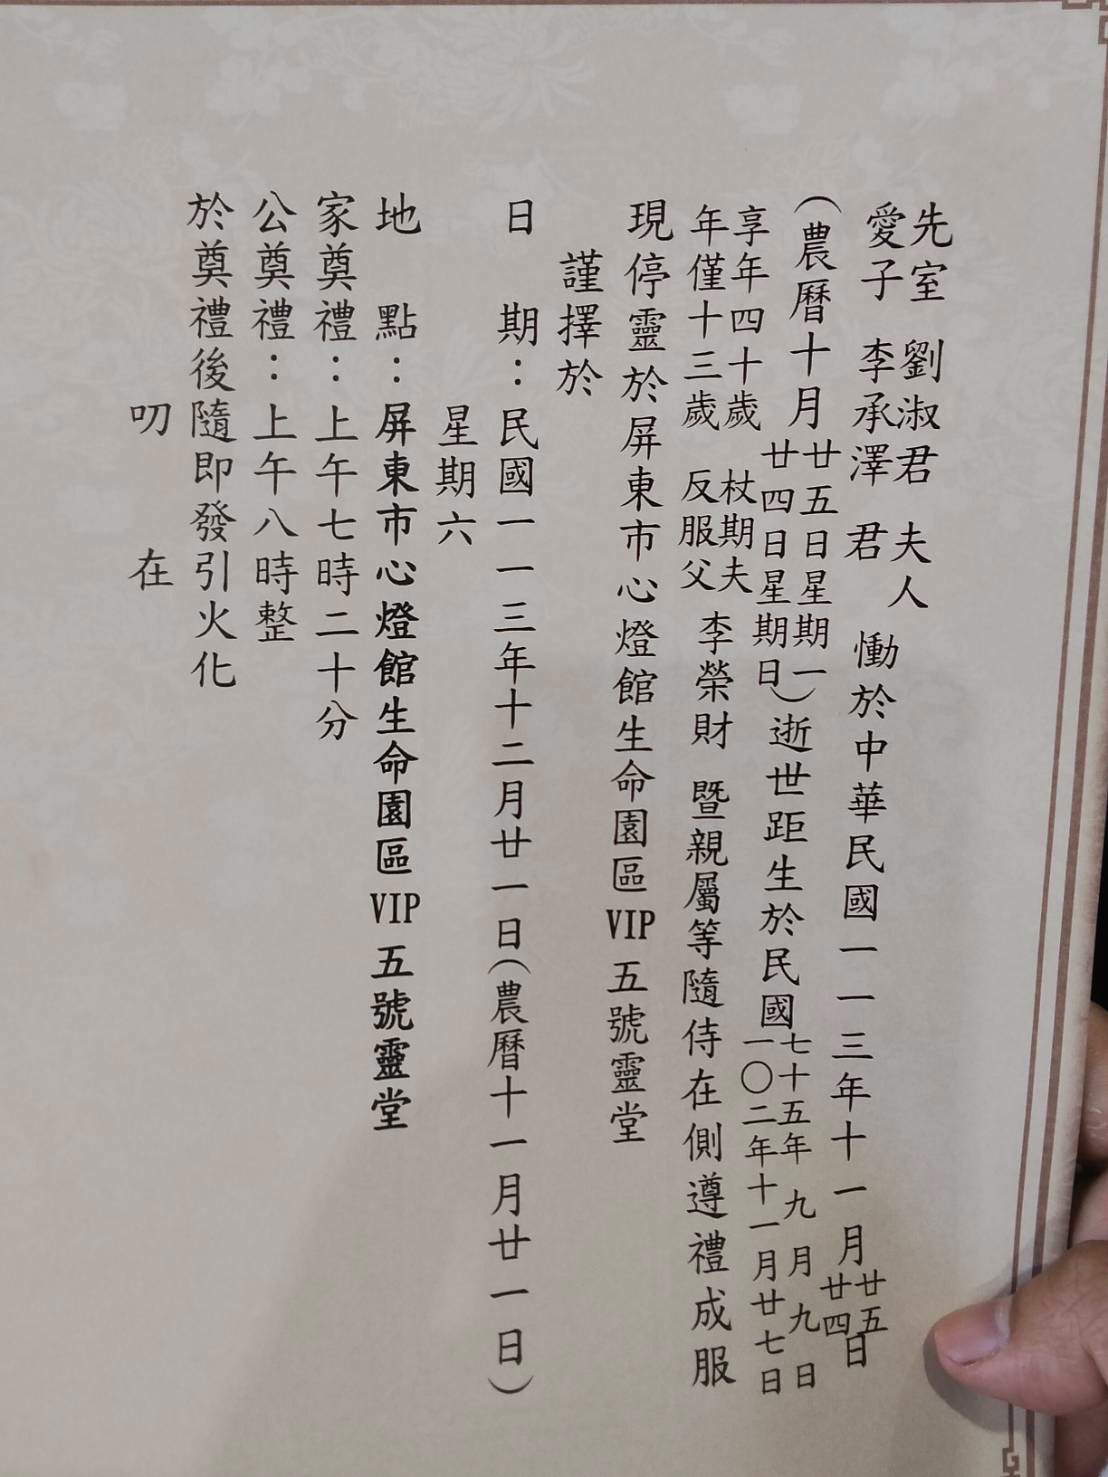 先室 劉淑君 夫人
愛子 李承澤 君
慟於中華民國一一三年十一月
廿五
廿四
日
(農曆十月
廿五日星期一
廿四日星期日
)逝世距生於民國
七十五年 九 月 九 日
一〇二年十一月廿七日
享年四十歲
年僅十三歲
杖期夫
反服父
李榮財 暨親屬等隨侍在側遵禮成服
現停靈於屏東市心燈館生命園區VIP五號靈堂
謹擇於
日 期:民國一一三年十二月廿一日(農曆十一月廿一日)
星期六
地 點:屏東市心燈館生命園區VIP五號靈堂
家奠禮:上午七時二十分
公奠禮:上午八時整
於奠禮後隨即發引火化
叨 在